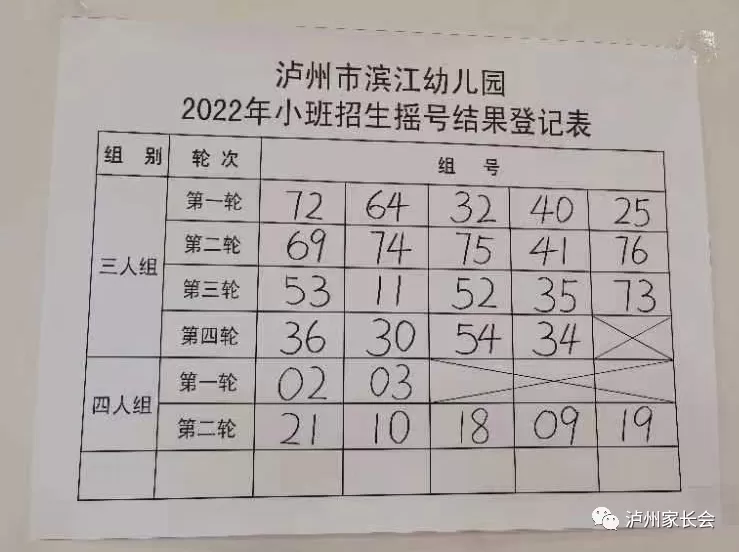 泸州市滨江幼儿园
2022年小班招生摇号结果登记表
组 别 轮次 组 号
三人组
第一轮 72 64 32 40 25
第二轮 69 74 75 41 76
第三轮 53 11 52 35 73
第四轮 36 30 54 34
四人组
第一轮 02 03
第二轮 21 10 18 09 19
泸州家长会